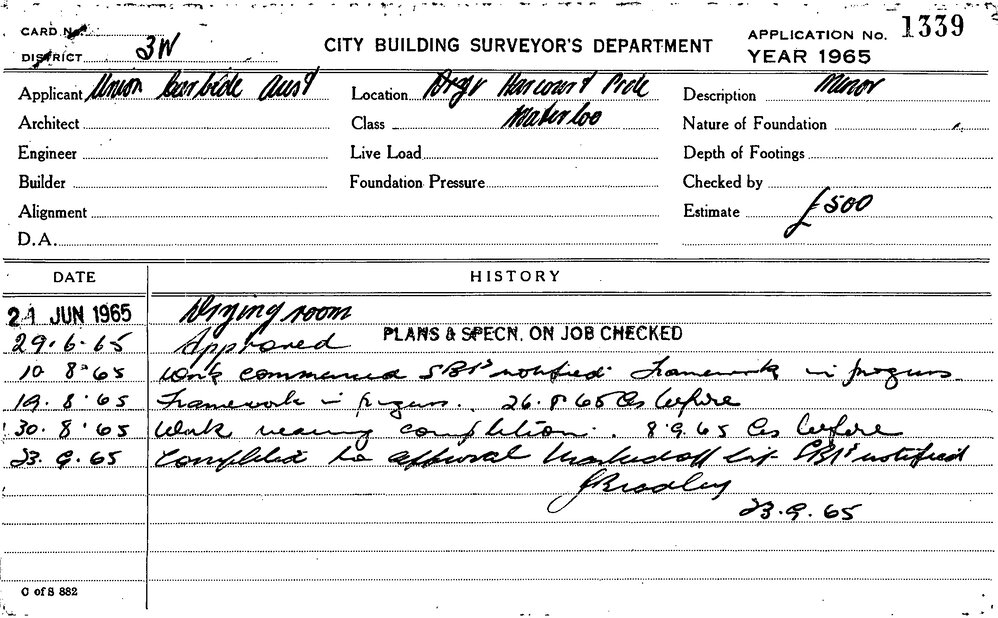 CARD No.
DISTRICT 3W
CITY BUILDING SURVEYOR'S DEPARTMENT
APPLICATION No. 1339
YEAR 1965
Applicant Union Carbide Aust Location Harcourt Pde Description Minor
Architect Class Waterloo Nature of Foundation
Engineer Live Load Depth of Footings
Builder Foundation Pressure Checked by
Alignment Estimate £500
D.A.
DATE HISTORY
21 JUN 1965 Drying room
29.6.65 Approved PLANS & SPECN. ON JOB CHECKED
10 8.65 Work commenced SBI's notified. Framework in progress
19.8.65 Framework in progress. 26.8.65 As before
30.8.65 Work nearing completion. 8.9.65 As before
23.9.65 Completed to approval Marked off list SBI's notified
J Bradley
23.9.65
C of S 882